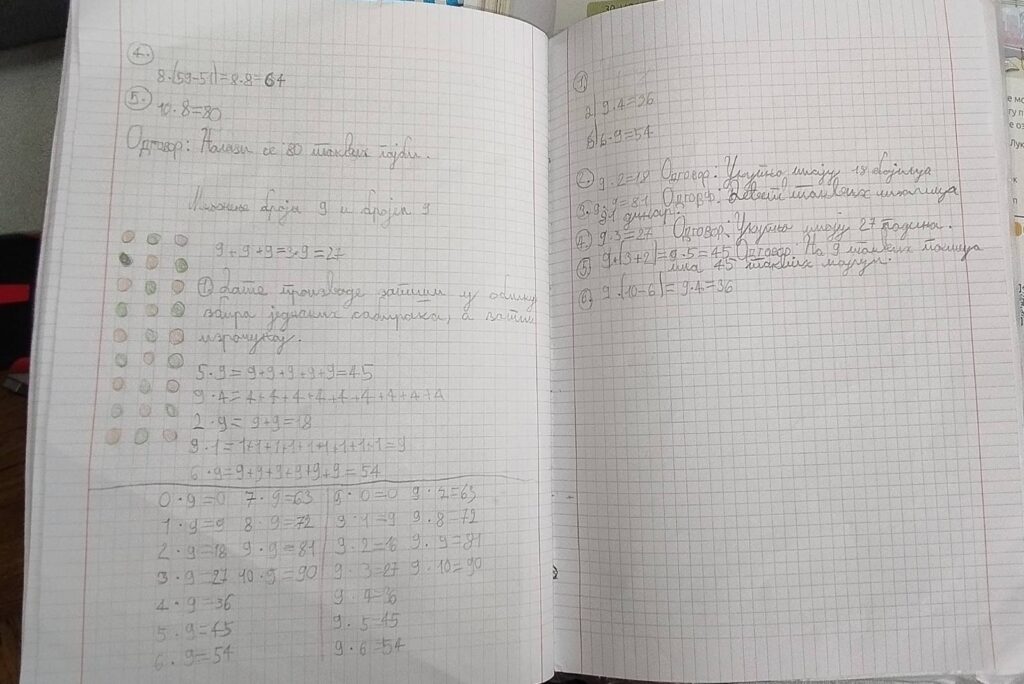 4.
8·(59-51)=8·8=64
5.
10·8=80
Одговор: Налази се 80 таквих
Множење броја 9 и бројем 9
9+9+9=3·9=27
① Дате производе запиши у облику
збира једнаких сабирака, а затим
израчунај.
5·9=9+9+9+9+9=45
9·4=4+4+4+4+4+4+4+4+4
2·9=9+9=18
9·1=1+1+1+1+1+1+1+1+1=9
6·9=9+9+9+9+9+9=54
0·9=0 7·9=63 9·0=0 9·7=63
1·9=9 8·9=72 9·1=9 9·8=72
2·9=18 9·9=81 9·2=18 9·9=81
3·9=27 10·9=90 9·3=27 9·10=90
4·9=36 9·4=36
5·9=45 9·5=45
6·9=54 9·6=54
1.
а) 9·4=36
б) 6·9=54
2. 9·2=18 Одговор: Укупно имају 18 бојица
3. 9·9=81 Одговор: Девет таквих
81 динар.
4. 9·3=27 Одговор: Укупно имају 27 година.
5. 9·(3+2)=9·5=45 Одговор: На 9 таквих
има 45 таквих
6. 9·(10-6)=9·4=36